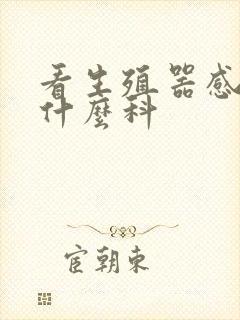 看生殖器感
什麼科
宦朝東